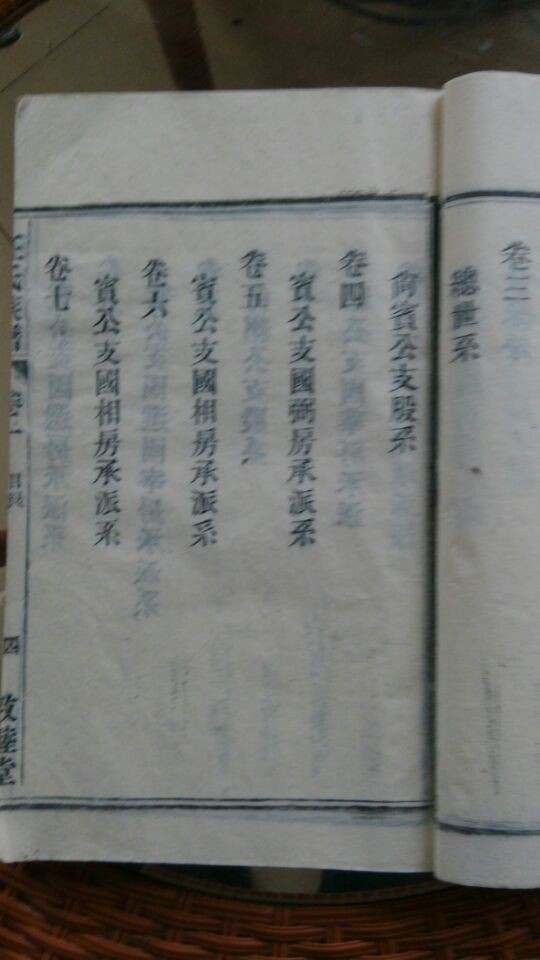 卷三
總世系
尚賓公支股系
卷四
賓公支國弼房承派系
卷五
賓公支國相房承派系
卷六
賓公支國相房承派系
卷七
氏族譜
卷二
目錄
四
敦睦堂